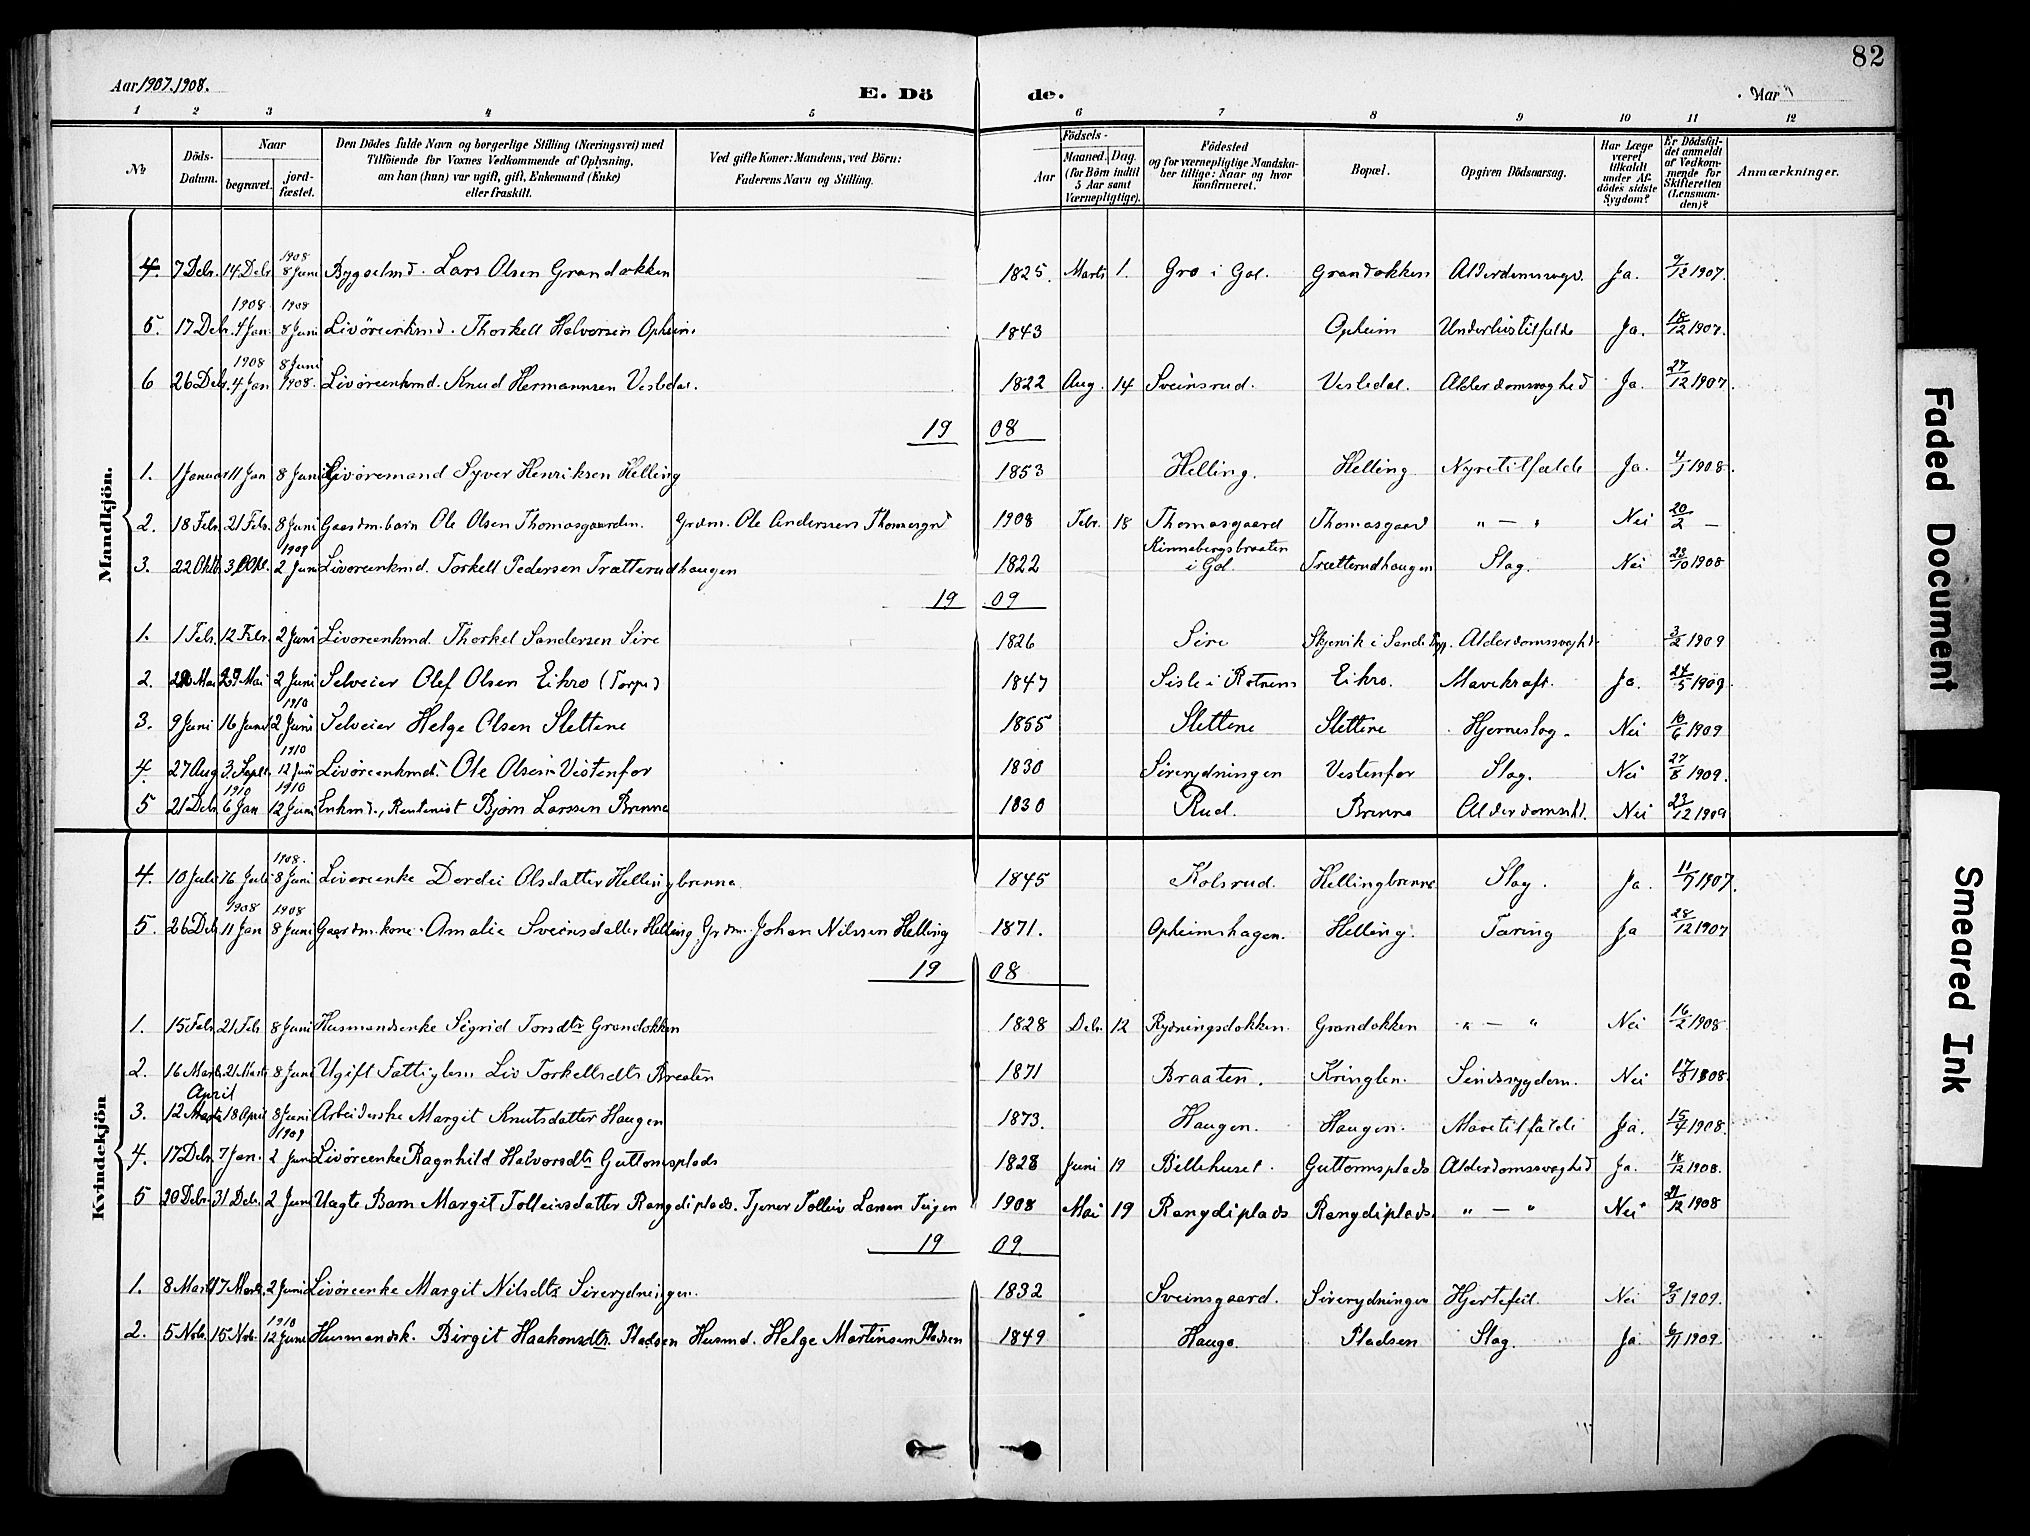 82
Aar 1907. 1908. E. Dö de. Aar
1 2 3 4 5 6 7 8 9 10 11 12
№ Döds-Datum. Naar begravet. jord-fæstet. Den Dödes fulde Navn og borgerlige Stilling (Næringsvei) med Tilföiende for Voxnes Vedkommende af Oplysning, om han (hun) var ugift, gift, Enkemand (Enke) eller fraskilt. Ved gifte Koner: Mandens, ved Börn: Faderens Navn og Stilling. Födsels- Aar Maaned. Dag. (for Börn indtil 5 Aar samt Værnepligtige). Födested og for værnepligtige Mandska-ber tillige: Naar og hvor konfirmeret. Bopæl. Opgiven Dödsaarsag. Har Læge været tilkaldt under Af-dödes sidste Sygdom? Er Dödsfal-det anmeldt af Vedkom-mende for Skifteretten (Lensman-den)? Anmærkninger.
Mandkjön.
4. 7 Debr. 14. Debr 1908 8 Juni Bygselmd. Lars Olsen Grandokken 1825. Marts 1. Gro i Gol. Grandokken Alderdomssvagd. Ja. 9/12 1907.
5. 17 Debr. 1908 4 Jan. 1908 8 Juni Livöreenkmd. Thorkell Halvorsen Opheim. 1843 Opheim Underlivstilfælde Ja. 18/12 1907.
6 26 Debr. 1908 4 Jan 8 Juni 1908. Livöreenkmd. Knud Hermannsen Vesledal. 1822 Aug. 14 Sveinsrud. Vesledal. Alderdomssvaghed Ja. 27/12 1907.
19 08
1. 1 Januar 11 Jan 8 Juni Livöremand Syver Henriksen Helling 1853 Helling. Helling Nyretilfælde Ja. 4/1 1908.
2. 18 Febr. 21 Febr. 8 Juni Gaardm. barn Ole Olsen Thomasgaarden. Grdm. Ole Anderssen Thomasgrd 1908 Febr. 18 Thomasgaard Thomasgaard " — " Nei 20/2 —
3. 22 Oktb. 1909 2 Juni Livöreenkmd. Torkell Pedersen Trætterudhaugen 1822 Kinnebergsbraaten i Gol. Trætterudhaugen Slag. Nei 23/10 1908
19 09
1. 1 Febr. 12 Febr. 2 Juni Livöreenkmd. Thorkel Sandersen Sire 1826 Sire Skjervik i Sande Alderdomssvaghd. 3/2 1909
2. Mai 29 Mai 2 Juni Selveier Olef Olsen Eikro (Torpe) 1847 Sisle i Rotnem Eikro. Mavekræft. Ja. 24/5 1909.
3. 9 Juni 16 Juni 1910 12 Juni Selveier Helge Olsen Slettene 1855 Slettene Slettene Hjerneslag. Nei 10/6 1909
4. 27 Aug 3. Septr. 1910 12 Juni Livöreenkmd. Ole Olsen Vestenfor 1830 Sirerydningen Vestenfor Slag. Nei 27/8 1909.
5 21 Debr 1910 6 Jan 1910 12 Juni Enkmd., Rentenist Björn Larssen Brenna 1830 Rud. Brenna Alderdomsvhd. Nei 23/12 1909
Kvindekjön
4. 10 Juli 16 Juli 1908. 8 Juni Livöreenke Dordei Olsdatter Hellingbrenna 1845 Kolsrud. Hellingbrenna Slag. Ja 11/7 1907.
5. 26 Debr 1908 11 Jan 1908 8 Juni Gaardm. kone. Amalie Sveinsdatter Helling. Grdm. Johan Nilssen Helling 1871. Opheimshagen. Helling. Tæring Ja 28/12 1907
19 08
1. 15 Febr. 21 Febr. 8 Juni Husmandsenke Sigrid Torsdtr Grandokken 1828 Debr. 12 Rydningsdokken. Grandokken " — " Nei 16/2 1908.
2. 16 Marts. 21 Marts 8 Juni Ugift Fattiglem Liv Torkellsdtr Braaten 1871 Braaten. Kringlen. Sindssygdom. Nei 17/3 1908.
3. April 12 Marts 18 April 8 Juni Arbeiderske Margit Knutsdatter Haugen 1873. Haugen. Haugen. Mavetilfælde Ja. 15/4 1908.
4. 17 Debr. 7 Jan. 1909 2 Juni Livöreenke Ragnhild Halvorsdtr Guttomsplads 1828 Juni 19 Billehuset. Guttormsplads Alderdomssvaghed Ja. 18/12 1908.
5 20 Debr. 31 Debr. 2 Juni Uægte Barn Margit Tolleivsdatter Rangdiplads. Tjener Tolleiv Larsen Teigen 1908 Mai 19 Rangdiplads Rangdiplads. " — " Nei 21/12 1908
19 09.
1. 8 Marts 17 Marts. 2 Juni Livöreenke Margit Nilsdtr Sirerydningen. 1832 Sveinsgaard. Sirerydningen Hjertefeil. Nei 9/3 1909.
2. 5 Nobr. 15 Nobr. 1910 12 Juni Husmandsk. Birgit Haakonsdtr. Pladsen Husmd. Helge Martinsen Pladsen 1849 Haugo. Pladsen Slag. Ja 6/11 1909.
Faded Document
Smeared Ink